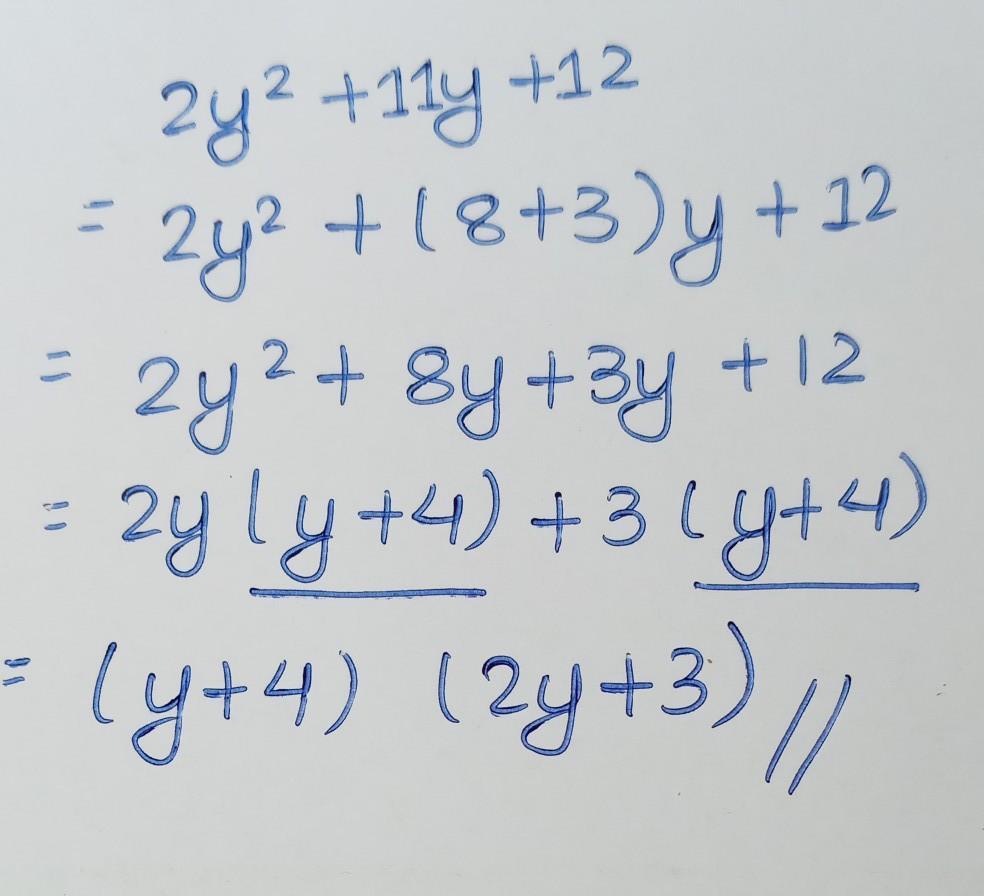 2y² + 11y + 12
= 2y² + (8+3)y + 12
= 2y² + 8y + 3y + 12
= 2y (y+4) + 3 (y+4)
= (y+4) (2y+3) //